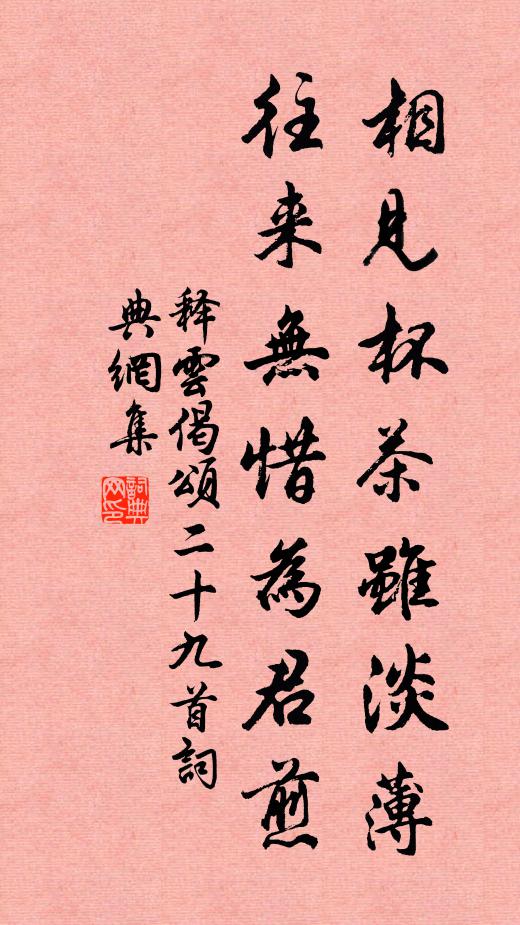 相見杯茶雖淡薄
往来無惜為君煎
释雲偈頌二十九首詞
典網集
詞典网印